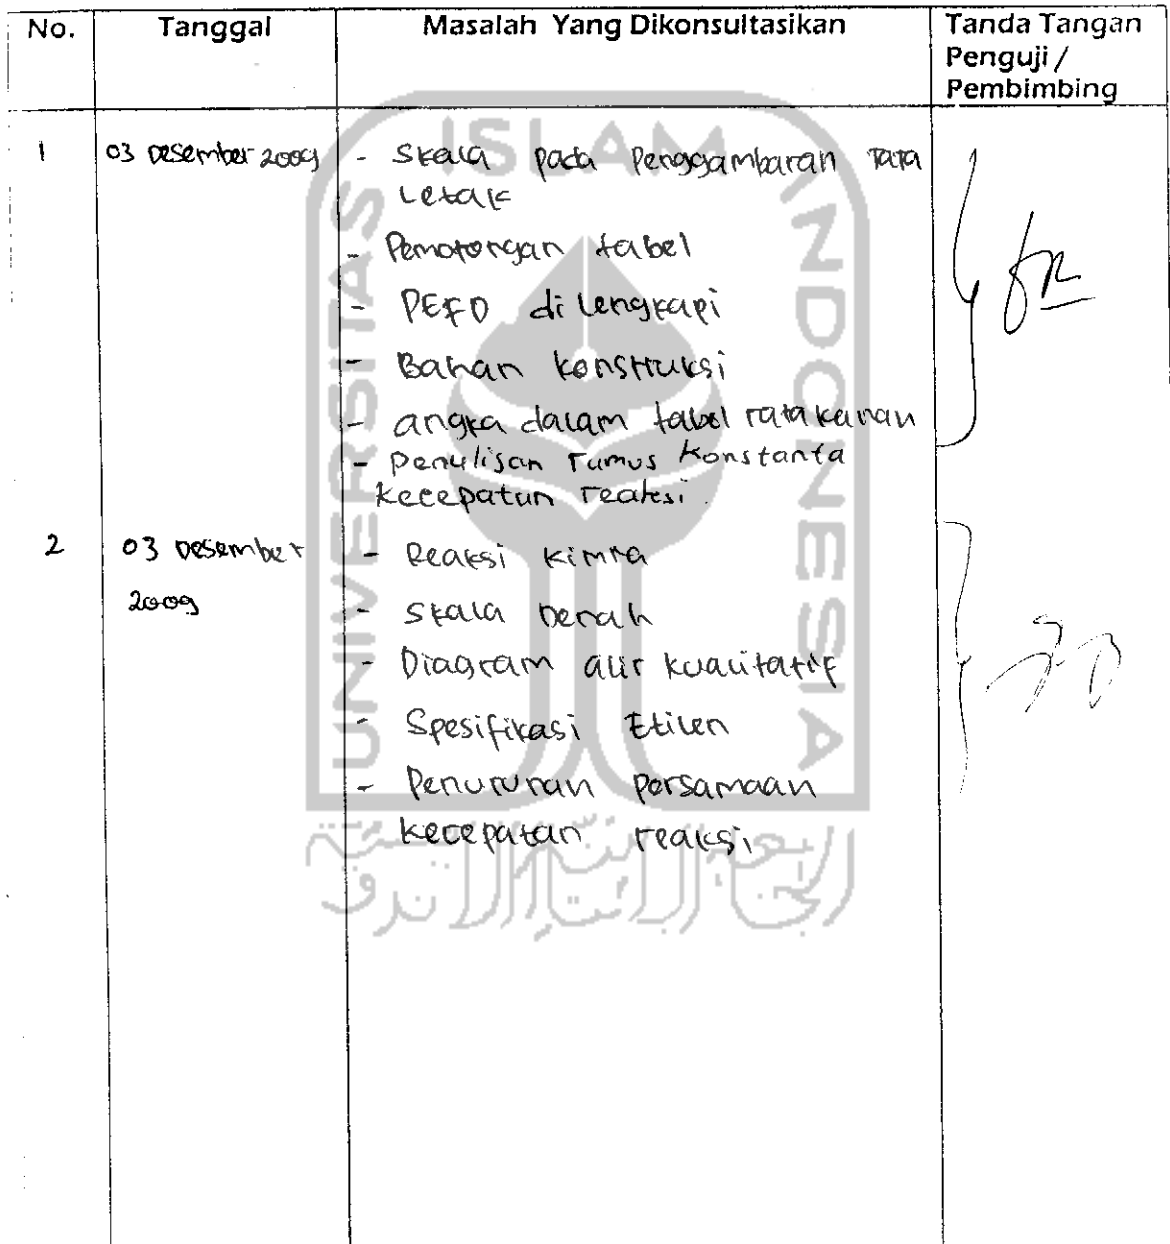 No. Tanggal Masalah Yang Dikonsultasikan Tanda Tangan
Penguji /
Pembimbing
1 03 Desember 2009 - Skala pada Penggambaran Tata
Letak
- Pemotongan tabel
- PEFD di lengkapi
- Bahan konstruksi
- angka dalam tabel rata kanan
- Penulisan rumus Konstanta
kecepatan reaksi.
2 03 Desember - Reaksi kimia
2009 - Skala denah
- Diagram alir kualitatif
- Spesifikasi Etilen
- Penurunan persamaan
kecepatan reaksi
UNIVERSITAS ISLAM INDONESIA